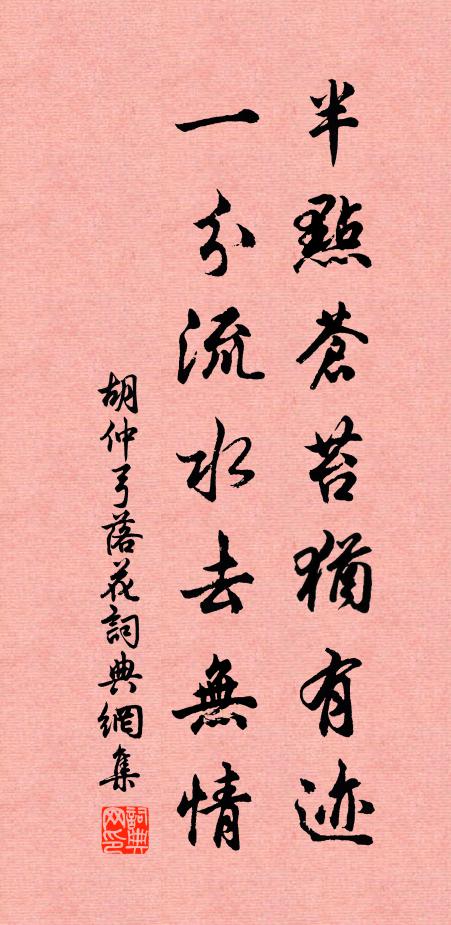 半點蒼苔猶有迹
一分流水去無情
胡仲弓落花詞典網集
詞典网印